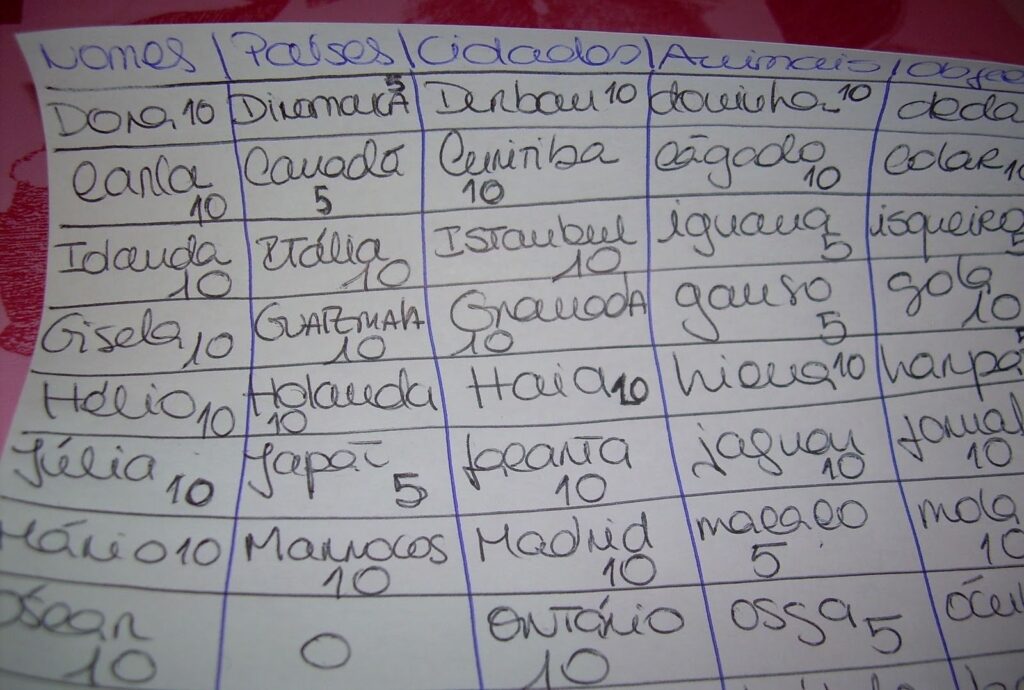 Nomes | Países | Cidades | Animais | Obje
Dora 10 Dinamarca 5 Durban 10 doninha 10 deda
Carla 10 Canadá 5 Curitiba 10 cágado 10 colar 10
Iolanda 10 Itália 10 Istanbul 10 iguana 5 isqueiro 5
Gisela 10 GUATEMALA 10 Granada 10 ganso 5 gola 10
Hélio 10 Holanda 10 Haia 10 hiena 10 harpa 5
Júlia 10 Japão 5 Jacarta 10 jaguar 10 jornal 10
Mário 10 Marrocos 10 Madrid 10 macaco 5 mola 10
Óscar 10 0 Ontário 10 ossga 5 ócul